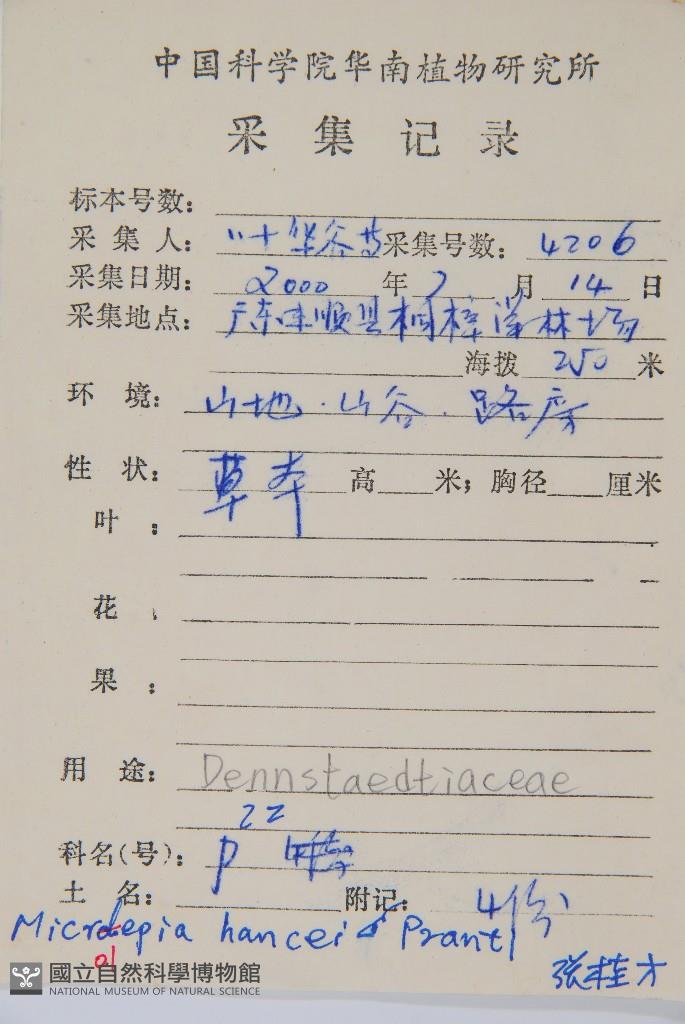 中国科学院华南植物研究所
采集记录
标本号数:
采集人: 叶华谷 采集号数: 4206
采集日期: 2000 年 7 月 14 日
采集地点: 广东 顺县 林场
海拨 250 米
环境: 山地.山谷.路旁
性状: 草本 高 米; 胸径 厘米
叶:
花:
果:
用途: Dennstaedtiaceae
科名(号): P 22
土名: 附记: 4份
Microlepia hancei Prantl
ol
张桂才
國立自然科學博物館
NATIONAL MUSEUM OF NATURAL SCIENCE